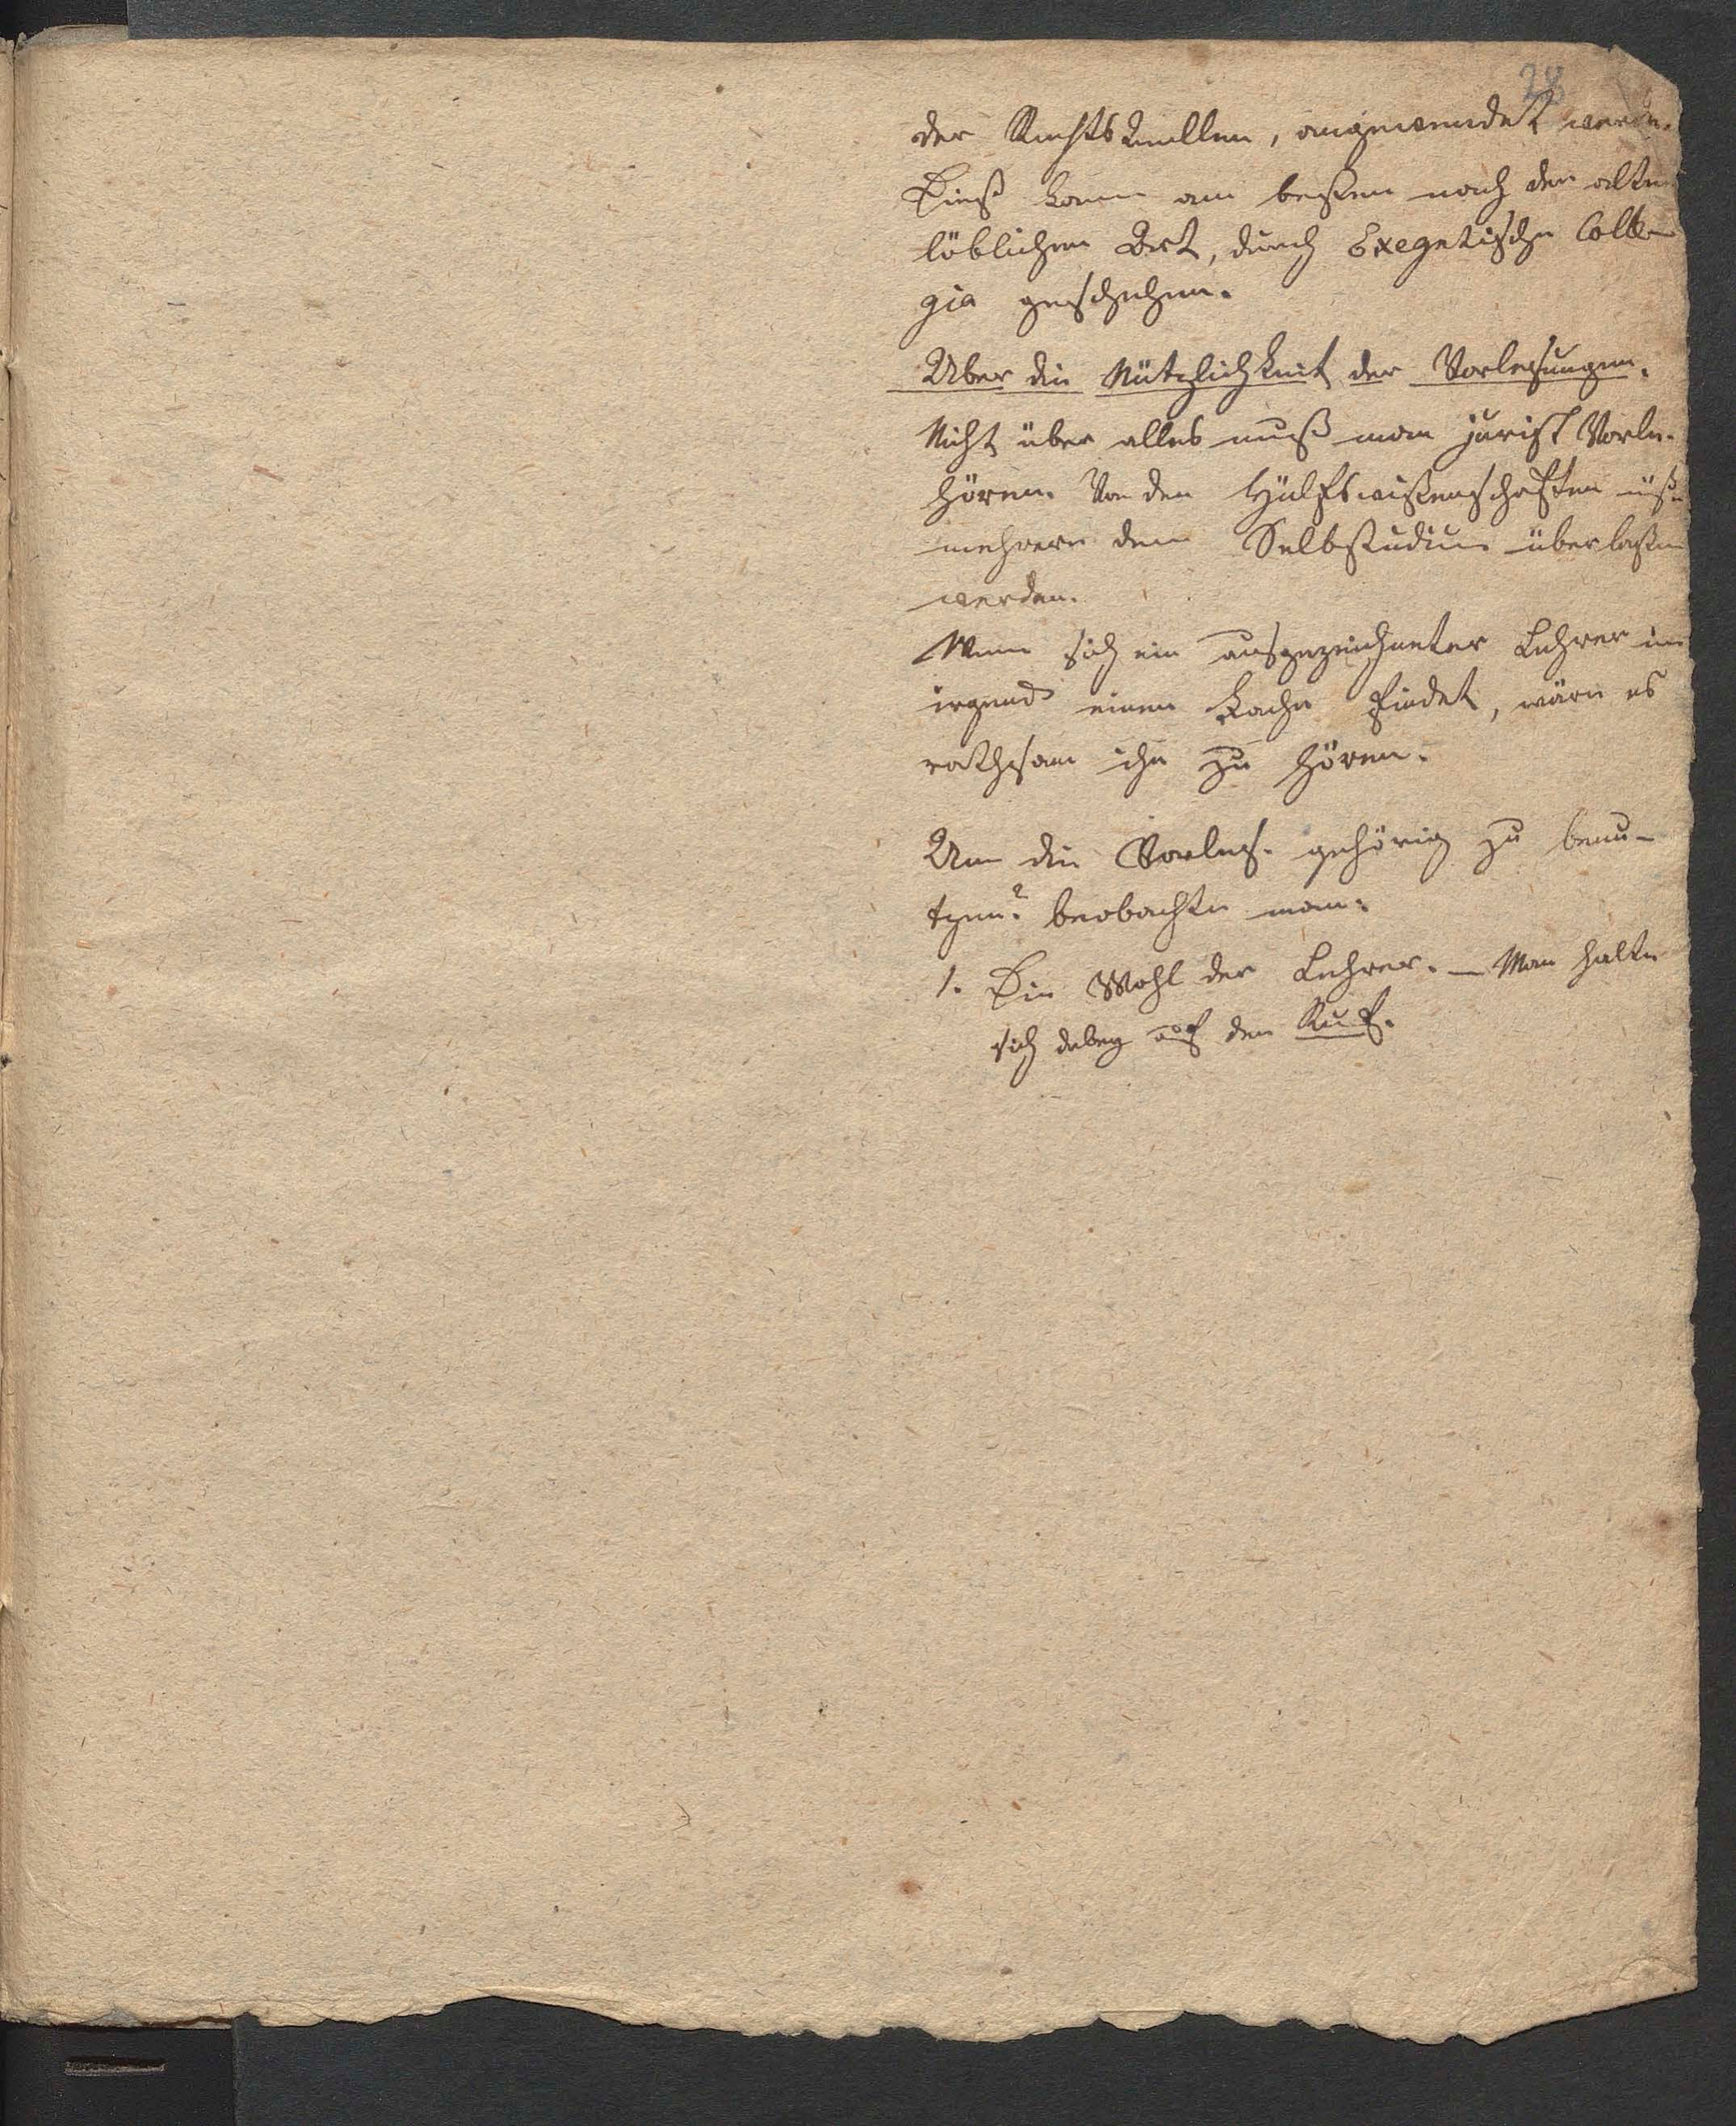 28
der Rechts Quellen, angewendet werde.
Dieß kann am besten nach der alten
löblichen Art, durch Exegetische Colle-
gia geschehen.
Uber die Nützlichkeit der Vorlesungen.
Nicht über alles muß man jurist Vorle.
hören. Von den Hülfswissenschaften
mehrere dem Selbstudium überlaßen
werden.
Wenn sich ein ausgezeichneter Lehrer in
irgend einem Fache findet, wäre es
rathsam ihn zu hören.
Um die Vorles. gehörig zu benu-
tzen? beobachte man:
1. Die Wahl der Lehrer. — Man halte
sich dabey auf den Ruf.